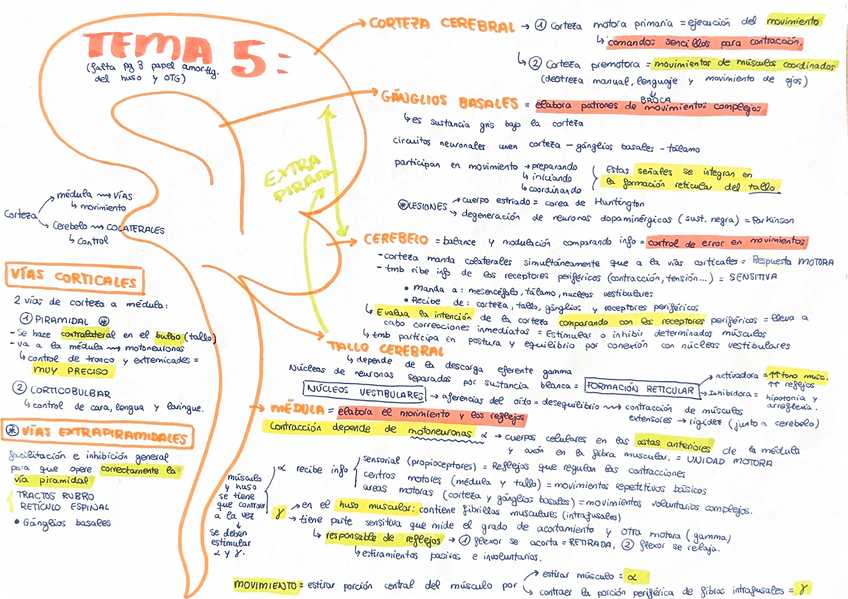 TEMA 5:
(falta pg 3 papel amortig.
del huso y OTG)
CORTEZA CEREBRAL → ① Corteza motora primaria = ejecución del movimiento
↳ comandos sencillos para contracción.
↳ ② Corteza premotora = movimientos de músculos coordinados
(destreza manual, lenguaje y movimiento de ojos)
BROCA
GÁNGLIOS BASALES = elabora patrones de movimientos complejos.
↳ es sustancia gris bajo la corteza
circuitos neuronales unen corteza - gánglios basales - tálamo
participan en movimiento → preparando
↳ iniciando
↳ coordinando
Estas señales se integran en
la formación reticular del tallo
⊛LESIONES → cuerpo estriado = corea de Huntington
→ degeneración de neuronas dopaminérgicas (sust. negra) = Parkinson
EXTRA
PIRAM
Corteza
médula ⟿ VÍAS
↳ movimiento
Cerebelo ⟿ COLATERALES
↳ Control
CEREBELO = balance y modulación comparando info = control de error en movimientos
- corteza manda colaterales simultáneamente que a la vías corticales = Respuesta MOTORA
- tmb ribe info de los receptores periféricos (contracción, tensión...) = SENSITIVA
• Manda a: mesencéfalo, tálamo, nucleos vestibulares
• Recibe de: corteza, tallo, gánglios y receptores periféricos
↳ Evalua la intención de la corteza comparando con los receptores periféricos = lleva a
cabo correcciones inmediatas = Estimular o inhibir determinados músculos
↳ tmb participa en postura y equilibrio por conexión con núcleos vestibulares
VÍAS CORTICALES
2 vías de corteza a médula:
① PIRAMIDAL ⊛
- Se hace contralateral en el bulbo (tallo)
- va a la médula ⟿ motoneuronas
↳ control de tronco y extremidades =
MUY PRECISO
② CORTICOBULBAR
↳ control de cara, lengua y laringe.
TALLO CEREBRAL
↳ depende de la descarga eferente gamma
Núcleos de neuronas separados por sustancia blanca = FORMACIÓN RETICULAR
activadora = ↑↑ tono musc.
↑↑ reflejos
Inhibidora = hipotonía y
arreflexia.
NÚCLEOS VESTIBULARES → aferencias del oído = desequilibrio ⟿ contracción de músculos
extensores → rigidez (junto a cerebelo)
⊛ VÍAS EXTRAPIRAMIDALES
facilitación e inhibición general
para que opere correctamente la
vía piramidal
TRACTOS RUBRO
RETÍCULO ESPINAL
• Gánglios basales
MÉDULA = elabora el movimiento y los reflejos
Contracción depende de motoneuronas α → cuerpos celulares en las astas anteriores de la médula
y axón en la fibra muscular. = UNIDAD MOTORA
α recibe info
sensorial (propioceptores) = Reflejos que regulan las contracciones
centros motores (médula y tallo) = movimientos repetitivos básicos
areas motoras (corteza y gánglios basales) = movimientos voluntarios complejos.
músculo
y huso
se tiene
que contraer
a la vez
↓
se deben
estimular
α y γ.
γ → en el huso muscular: contiene fibrillas musculares (intrafusales)
→ tiene parte sensitiva que mide el grado de acortamiento y otra motora (gamma)
↳ responsable de reflejos → ① flexor se acorta = RETIRADA, ② flexor se relaja.
↳ estiramientos pasivos e involuntarios.
MOVIMIENTO = estirar porción central del músculo por
estirar músculo = α
contraer la porción periférica de fibras intrafusales = γ